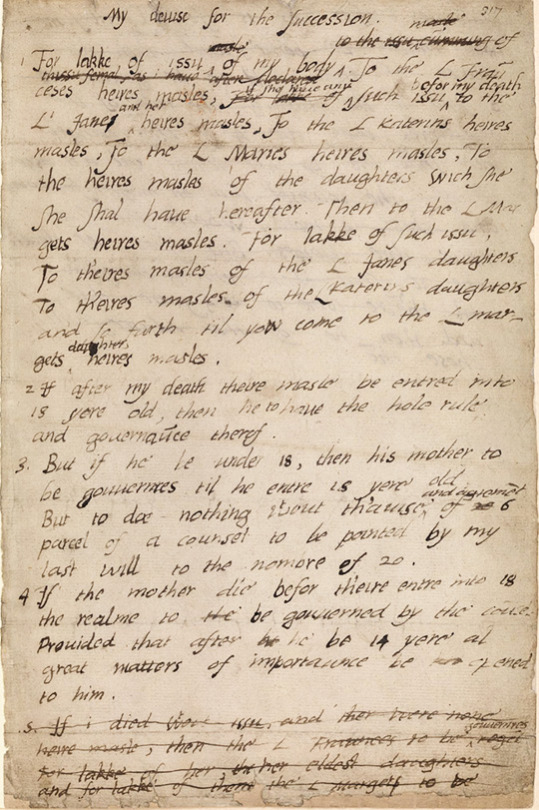 My devise for the Succession. 317
masle to the issu cumming of
1 For lakke of issu masle of my body, To the L Fraun
thissu femal, as i have after declared
ceses heires masles, For lakke of if she have any such issu befor my death, to the
L' Janes and her heires masles, To the L Katerins heires
masles, To the L Maries heires masles, To
the heires masles of the daughters wich she
she shal have hereafter. Then to the L Mar
gets heires masles. For lakke of such issu,
To theires masles of the L Janes daughters
To theires masles of the L Katerins daughters
and so forth til yow come to the L mar
gets daughters heires masles.
2 If after my death theire masle be entred into
18 yere old, then he to have the hole rule
and governauce therof.
3. But if he be under 18, then his mother to
be gouvernres til he entre 18 yere old
But to doe nothing wout thauise and agremēt of 6
parcel of a counsel to be pointed by my
last will to the nombre of 20.
4 If the mother die befor theire entre into 18
the realme to be gouuerned by the coūs
Provided that after he be 14 yere al
great matters of importaunce be opened
to him.
5. If i died wout issu, and ther were none
heire masle, then the L Fraunces to be gouuernres reget
For lakke of her eldest daughters
and for lakke of them the L Margets to be